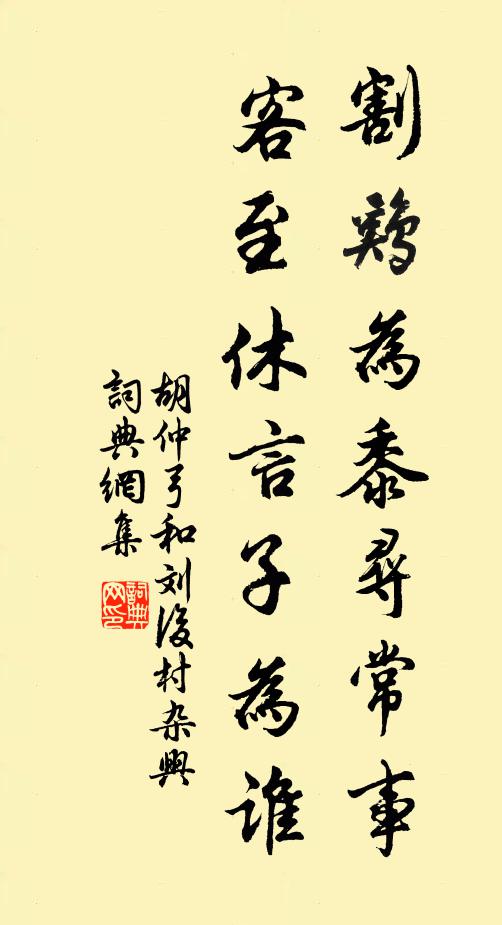 割鷄為黍尋常事
客至休言子為誰
胡仲弓和刘後村杂興
詞典網集
詞典网印